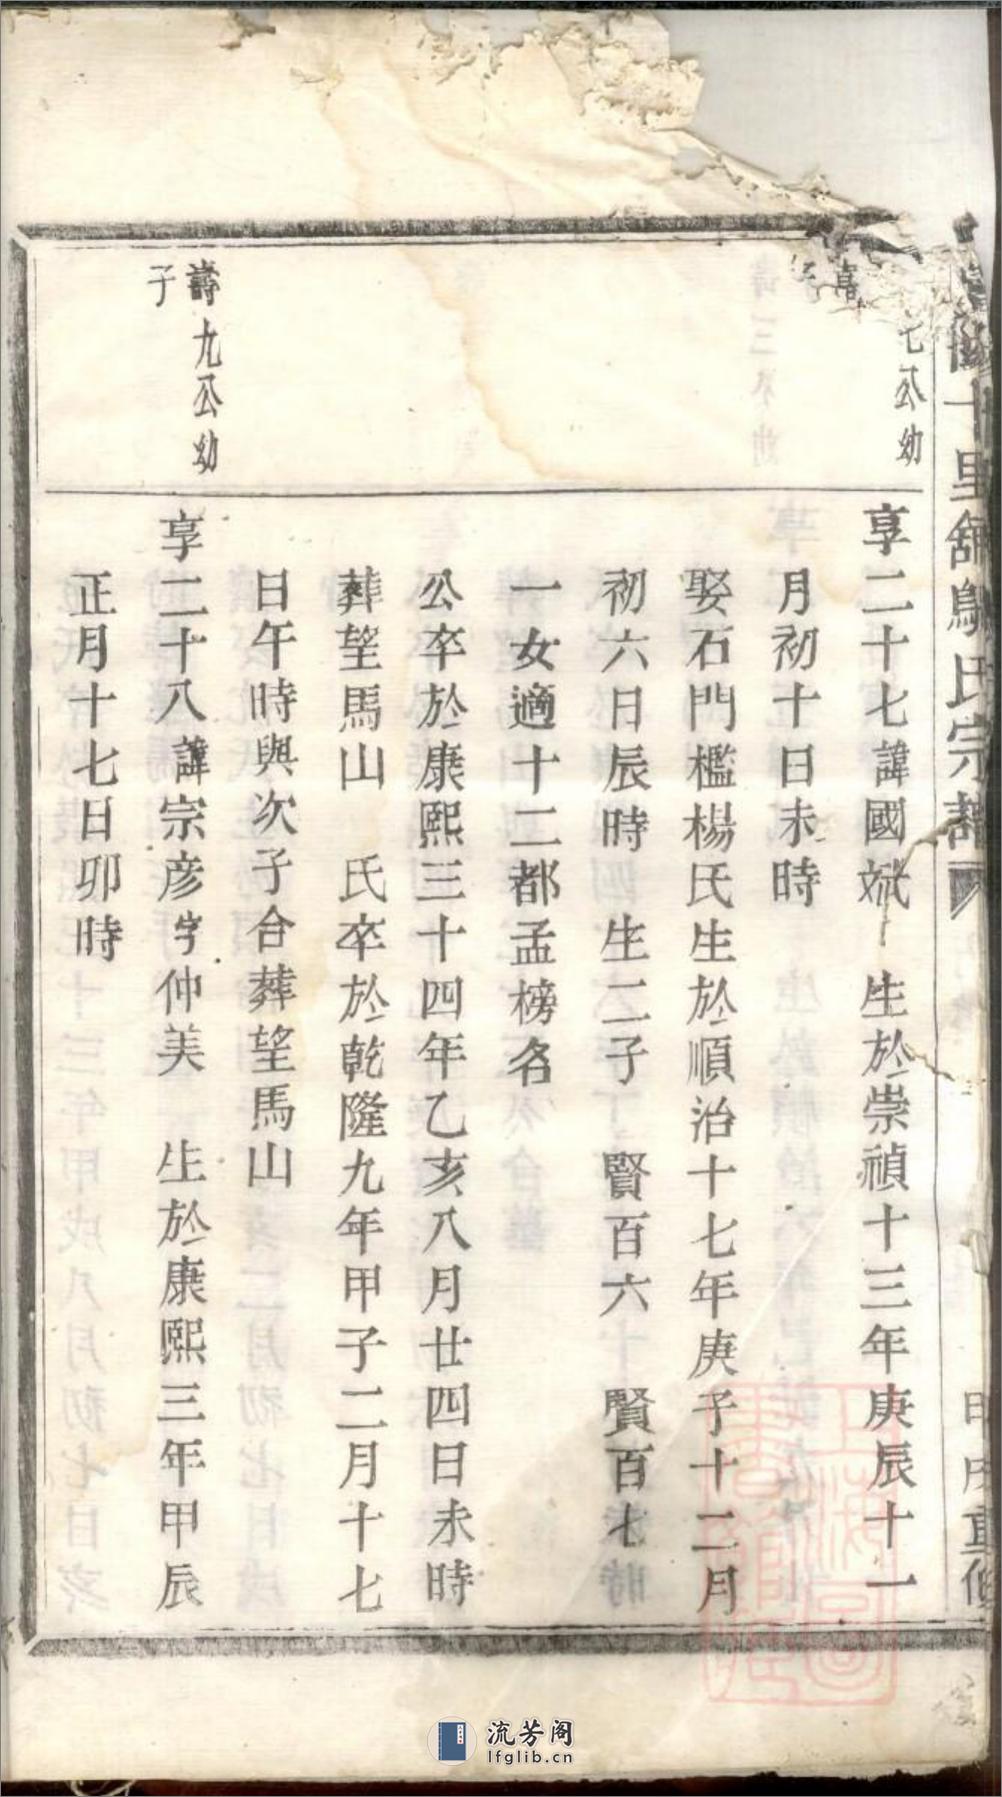 十里舖鄢氏宗譜
重修
七公幼
享二十七諱國斌 生於崇禎十三年庚辰十一
月初十日未時
娶石門檻楊氏生於順治十七年庚子十二月
初六日辰時 生二子 賢百六 賢百七
一女適十二都孟榜名
公卒於康熙三十四年乙亥八月廿四日未時
葬望馬山 氏卒於乾隆九年甲子二月十七
日午時與次子合葬望馬山
壽九公幼
子
享二十八諱宗彦字仲美 生於康熙三年甲辰
正月十七日卯時
流芳阁
lfglib.cn